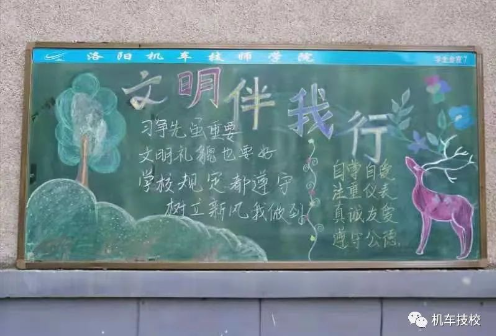 洛阳机车技师学院
文明伴我行
习争先虽重要
文明礼貌也要好
学校规定都遵守
树立新风我做到
自尊自爱
注重仪表
真诚友爱
遵守公德
机车技校